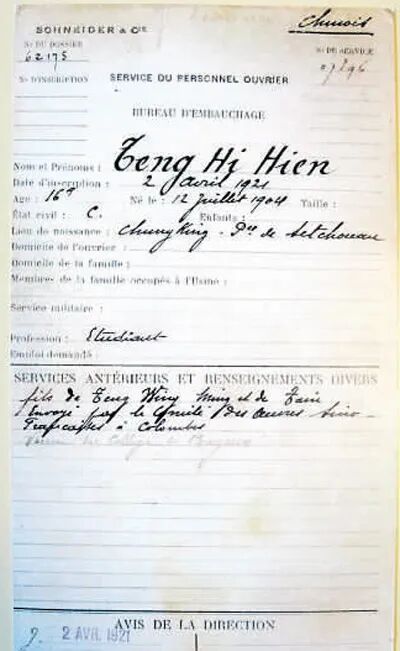 Chinois
SCHNEIDER & Cie
No DU DOSSIER
62175
No DE SERVICE
07396
No D'INSCRIPTION
SERVICE DU PERSONNEL OUVRIER
BUREAU D'EMBAUCHAGE
Nom et Prénoms : Teng Hi Hien
Date d'inscription : 2 avril 1921
Age : 16 Né le : 12 Juillet 1904 Taille :
État civil : C. Enfants :
Lieu de naissance : Chung King - Pce de Setchouan
Domicile de l'ouvrier :
Domicile de la famille :
Membres de la famille occupés à l'Usine :
Service militaire :
Profession : Etudiant
Emploi demandé :
SERVICES ANTÉRIEURS ET RENSEIGNEMENTS DIVERS
fils de Teng Wing Ming et de Tain
Envoyé par le Comité des Oeuvres Sino-
Françaises à Colombes
AVIS DE LA DIRECTION
2 AVR. 1921